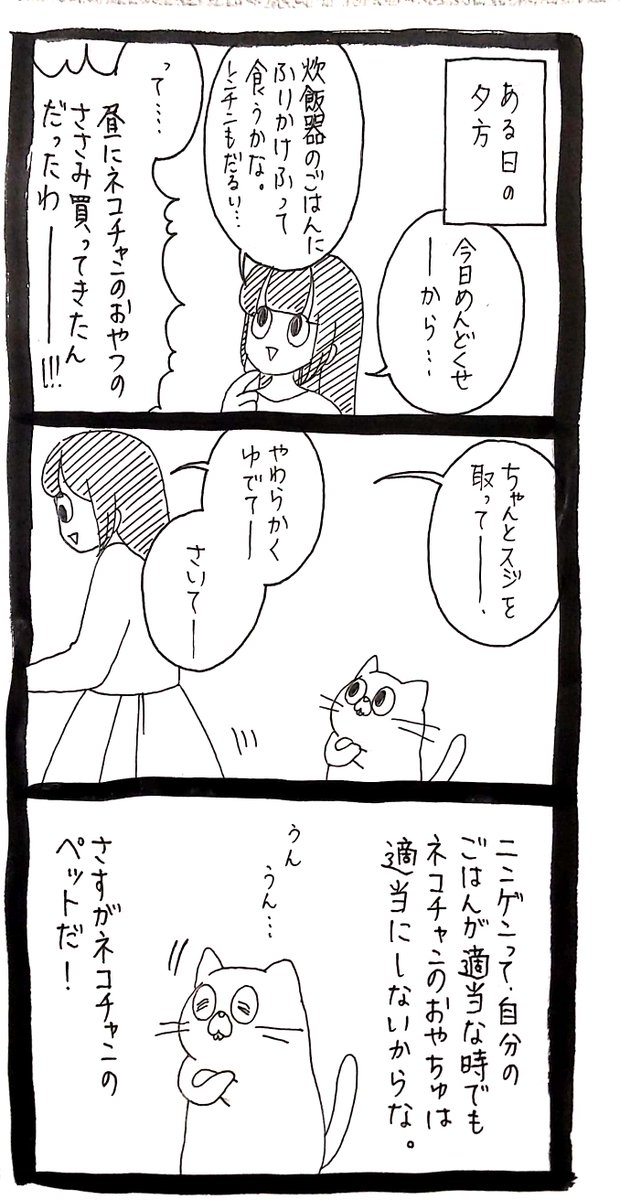 ある日の
夕方
今日めんどくせ
ーから…
炊飯器のごはんに
ふりかけふって
食うかな。
レンチンもだるい…
って…
昼にネコチャンのおやつの
ささみ買ってきたん
だったわ
ーーー!!!
ちゃんとスジを
取ってー、
やわらかく
ゆでてー
さいてー
ニンゲンって、自分の
ごはんが適当な時でも
ネコチャンのおやちゅは
適当にしないからな。
うん
うん…
さすがネコチャンの
ペットだ!